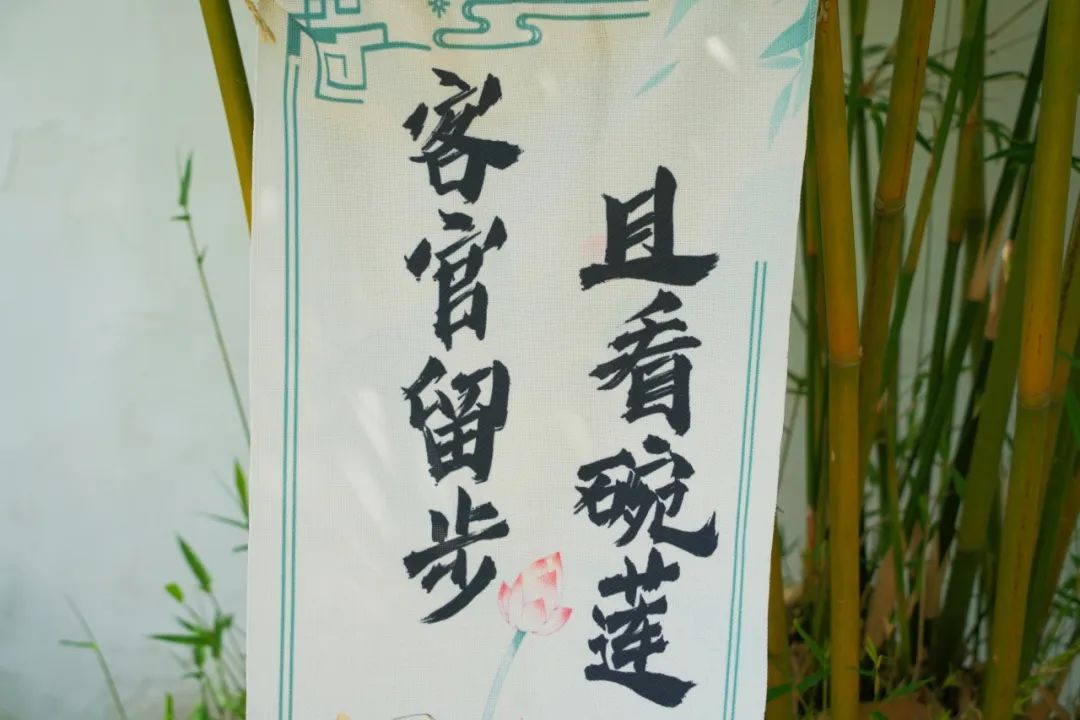 客官留步
且看碗莲